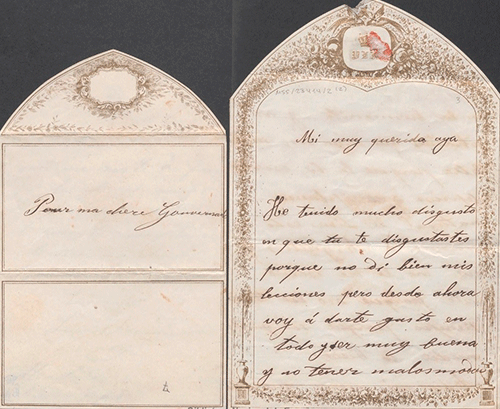 Pour ma chere Gouvernan
Mss/23404/2 (2)
3
Mi muy querida aya
He tenido mucho disgusto
en que tu te disgustastes
porque no di bien mis
lecciones pero desde ahora
voy á darte gusto en
todo y ser muy buena
y no tener malos modos